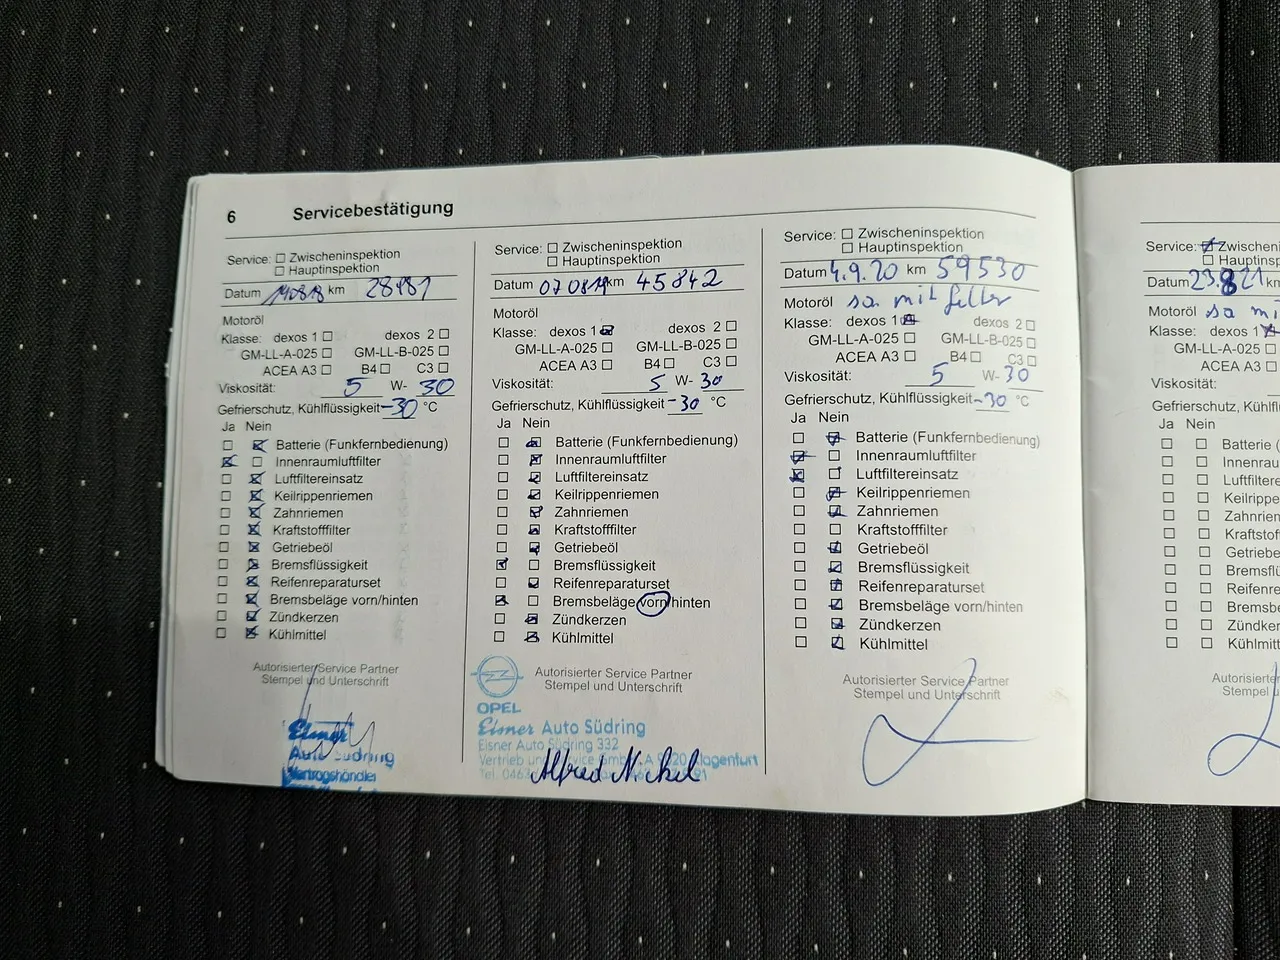 6 Servicebestätigung
Service: Zwischeninspektion
Hauptinspektion
Datum 140818 km 28181
Motoröl
Klasse: dexos 1 dexos 2
GM-LL-A-025 GM-LL-B-025
ACEA A3 B4 C3
Viskosität: 5 W- 30
Gefrierschutz, Kühlflüssigkeit -30 °C
Ja Nein
Batterie (Funkfernbedienung)
Innenraumluftfilter
Luftfiltereinsatz
Keilrippenriemen
Zahnriemen
Kraftstofffilter
Getriebeöl
Bremsflüssigkeit
Reifenreparaturset
Bremsbeläge vorn/hinten
Zündkerzen
Kühlmittel
Autorisierter Service Partner
Stempel und Unterschrift
Eisner
Auto Südring
Vertragshändler
Service: Zwischeninspektion
Hauptinspektion
Datum 070819 km 45842
Motoröl
Klasse: dexos 1 dexos 2
GM-LL-A-025 GM-LL-B-025
ACEA A3 B4 C3
Viskosität: 5 W- 30
Gefrierschutz, Kühlflüssigkeit -30 °C
Ja Nein
Batterie (Funkfernbedienung)
Innenraumluftfilter
Luftfiltereinsatz
Keilrippenriemen
Zahnriemen
Kraftstofffilter
Getriebeöl
Bremsflüssigkeit
Reifenreparaturset
Bremsbeläge vorn/hinten
Zündkerzen
Kühlmittel
Autorisierter Service Partner
Stempel und Unterschrift
OPEL
Eisner Auto Südring
Eisner Auto Südring 332
Vertrieb und Service GmbH, A 9020 Klagenfurt
Tel. 0463
Alfred Nickel
Service: Zwischeninspektion
Hauptinspektion
Datum 4.9.20 km 59530
Motoröl sa mit filter
Klasse: dexos 1 dexos 2
GM-LL-A-025 GM-LL-B-025
ACEA A3 B4 C3
Viskosität: 5 W- 30
Gefrierschutz, Kühlflüssigkeit -30 °C
Ja Nein
Batterie (Funkfernbedienung)
Innenraumluftfilter
Luftfiltereinsatz
Keilrippenriemen
Zahnriemen
Kraftstofffilter
Getriebeöl
Bremsflüssigkeit
Reifenreparaturset
Bremsbeläge vorn/hinten
Zündkerzen
Kühlmittel
Autorisierter Service Partner
Stempel und Unterschrift
Service: Zwischen
Hauptinsp
Datum 23.8.21 km
Motoröl sa mi
Klasse: dexos 1
GM-LL-A-025
ACEA A3
Viskosität:
Gefrierschutz, Kühlflüs
Ja Nein
Batterie (
Innenrau
Luftfiltere
Keilrippe
Zahnrien
Kraftstof
Getriebe
Bremsflü
Reifenre
Bremsbe
Zündker
Kühlmitt
Autorisierte
Stempel u